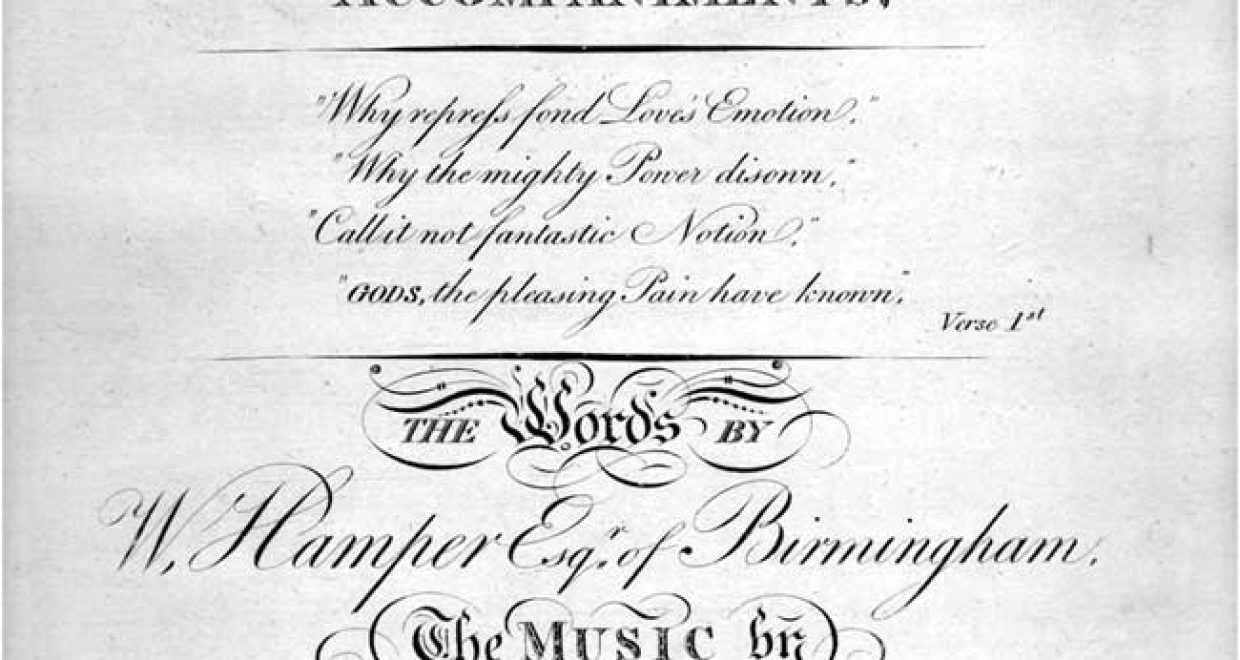 ACCOMPANIMENTS,
"Why repreſs fond Love's Emotion,"
"Why the mighty Power disown,"
"Call it not fantastic Notion,"
"GODS, the pleasing Pain have known,"
Verse 1st
THE Words BY
W. Hamper Esqr. of Birmingham.
The MUSIC by